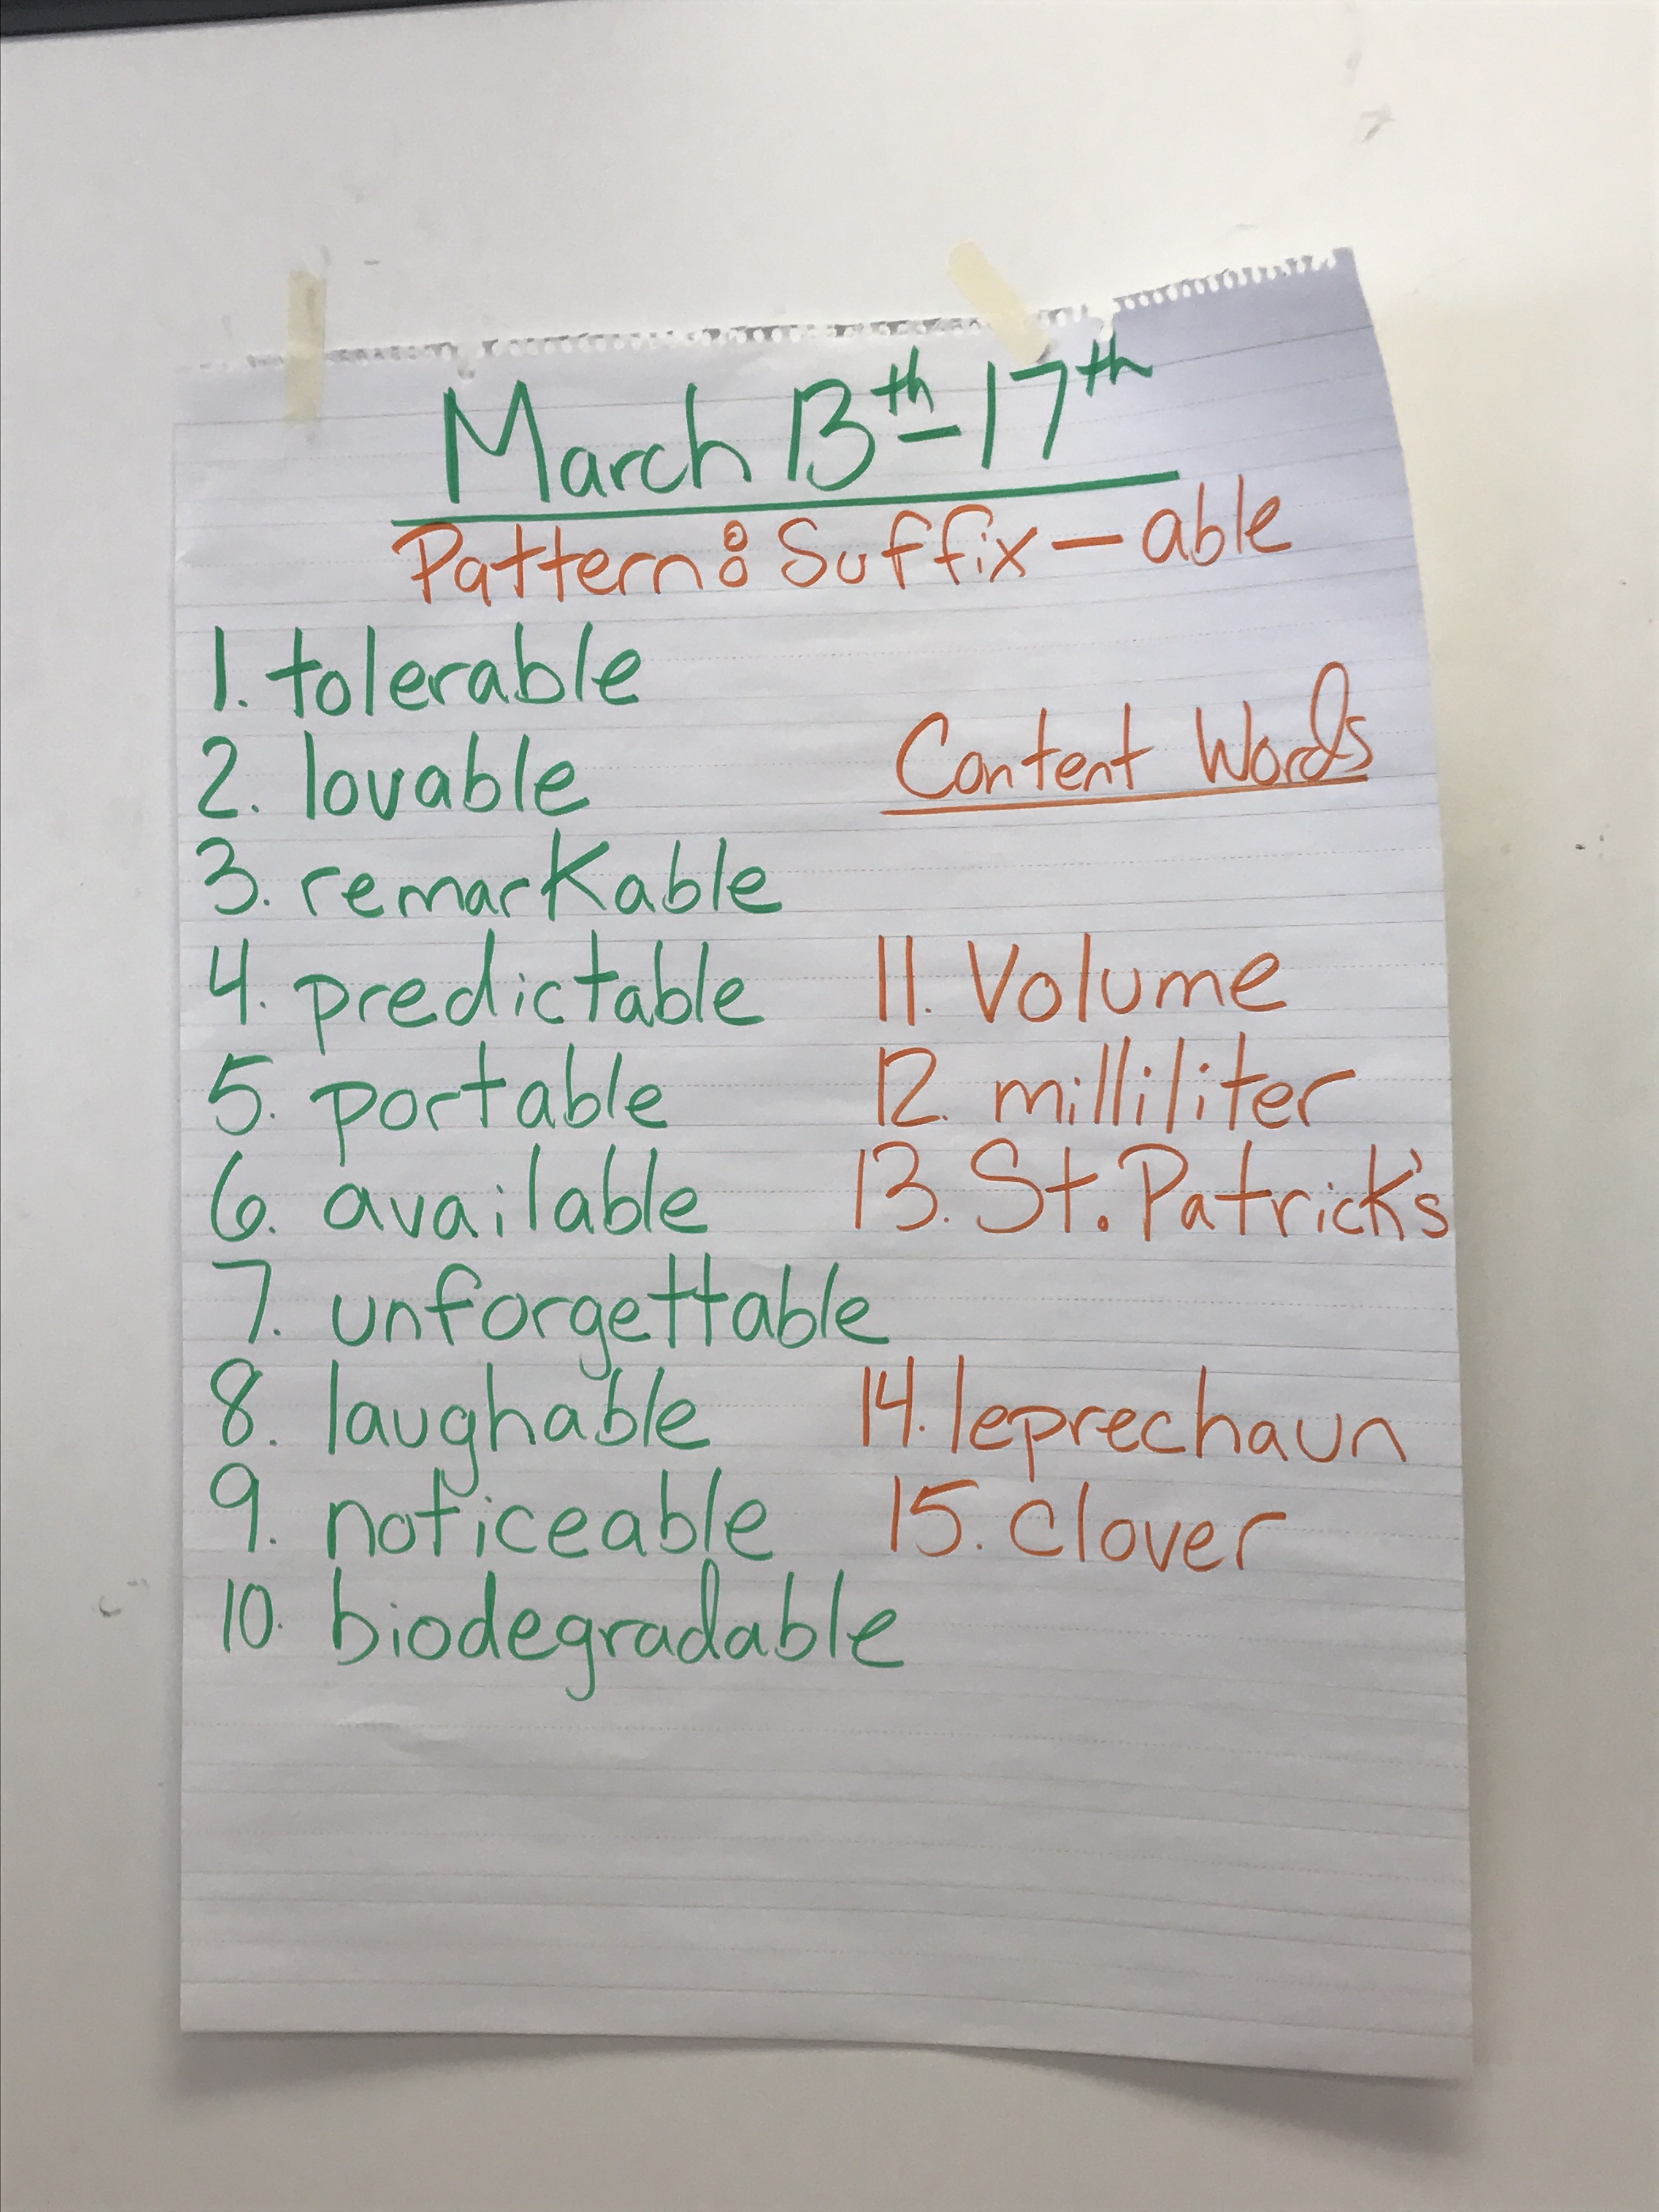 March 13th-17th
Pattern: Suffix - able
1. tolerable
2. lovable
3. remarkable
4. predictable
5. portable
6. available
7. unforgettable
8. laughable
9. noticeable
10. biodegradable
Content Words
11. Volume
12. milliliter
13. St. Patrick's
14. leprechaun
15. clover